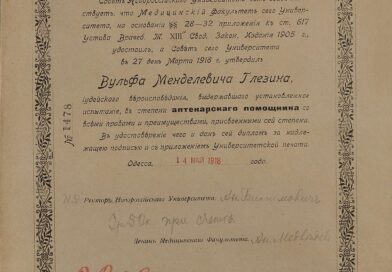 ствуетъ, что Медицинскій Факультетъ сего Универси-
тета, на основаніи §§ 26—32 приложенія къ ст. 617
Устава Врачеб. Т. XIII Свод. Закон. Изданія 1905 г.,
удостоилъ, а Совѣтъ сего Университета
въ 27 день Марта 1918 г. утвердилъ
Вульфа Менделевича Глезина,
іудейского вѣроисповѣданія, выдержавшаго установленное
испытаніе, въ степени аптекарскаго помощника со
всѣми правами и преимуществами, присвоенными сей степени.
Въ удостовѣреніе чего и данъ сей диплом за надле-
жащею подписью и съ приложеніемъ Университетской печати.
Одесса, 14 МАЯ 1918 года.
№ 1478
И.д. Ректоръ Новороссійскаго Университета
Деканъ Медицинскаго Факультета